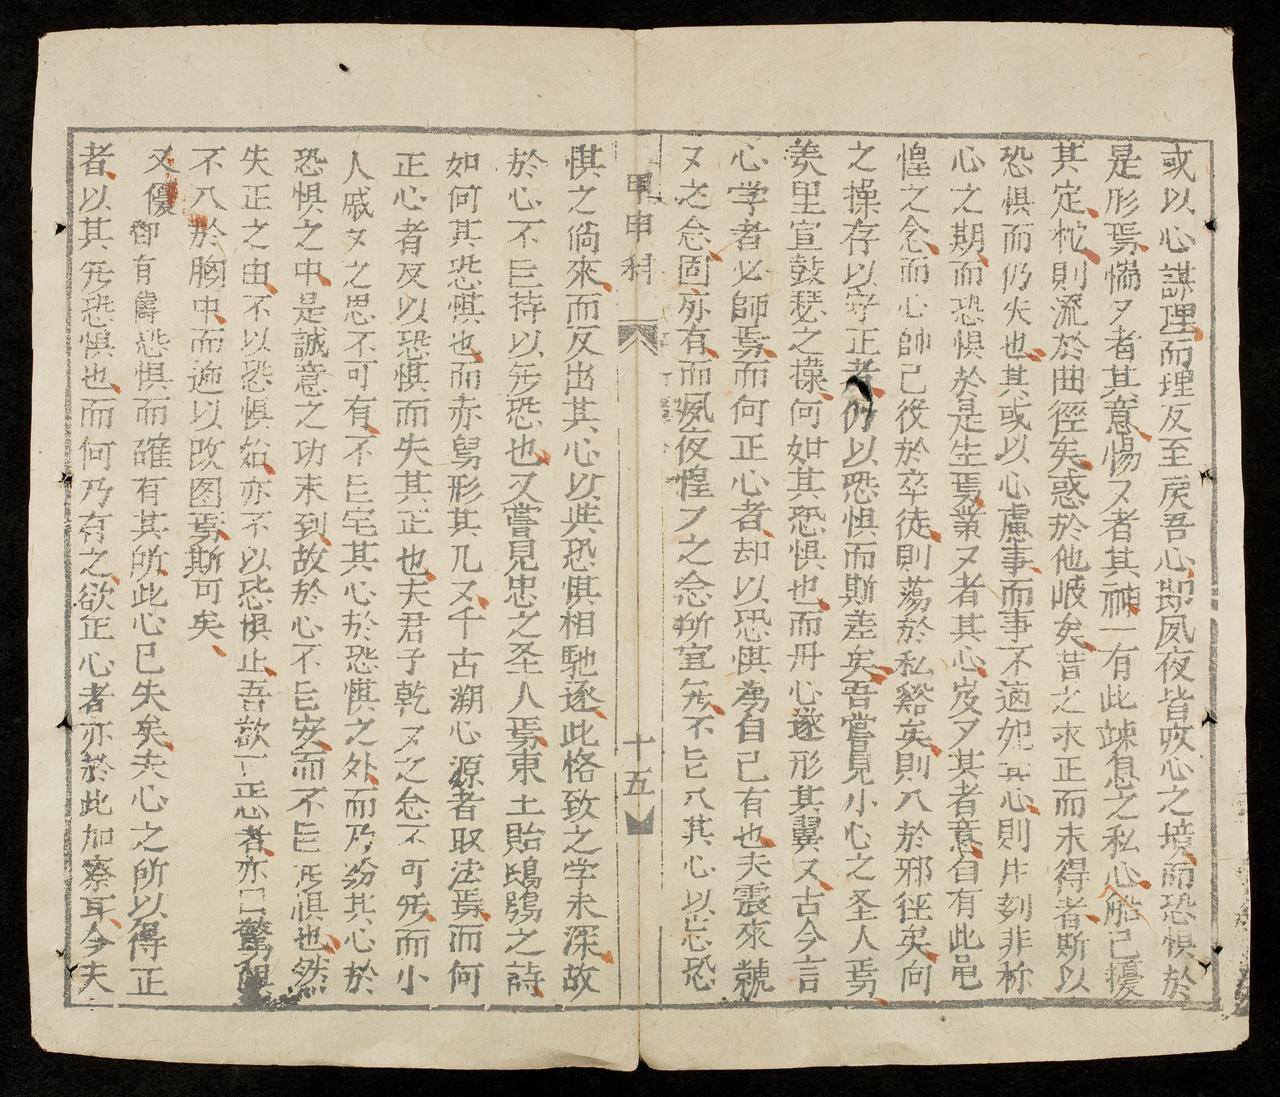 或以心謀理而理反至戾吾心即夙夜皆攻心之境而恐惧於
是形焉惴〻者其意惕〻者其神一有此竦息之私心能已擾
其定柁則流於曲徑矣惑於他岐矣昔之求正而未得者斯以
恐惧而仍失也其或以心慮事而事不適如其心則片刻非称
心之期而恐惧於是生焉業〻者其心岌〻其者意自有此皂
惶之念而心帥已役於卒徒則蕩於私谿矣則入於邪径矣向
之操存以守正者仍以恐惧而斯差矣吾嘗見小心之圣人焉
羑里宣鼓琴之操何如其恐惧也而丹心遂形其翼〻古今言
心学者必師焉而何正心者却以恐惧为自己有也夫震來虩
〻之念固亦有而夙夜惶〻之念所宜旡不㠯入其心以忘恐
甲申科
十五
惧之倘來而反出其心以與恐惧相馳逐此格致之学未深故
於心不㠯持以旡恐也又嘗見忠之圣人焉東土貽鴟鴞之詩
如何其恐惧也而赤舄形其几〻千古溯心源者取法焉而何
正心者反以恐惧而失其正也夫君子乾〻之念不可旡而小
人戚〻之思不可有不㠯宅其心於恐惧之外而乃紛其心於
恐惧之中是誠意之功未到故於心不㠯安而不㠯旡惧也然
失正之由不以恐惧始亦不以恐惧止吾欲正心者亦㠯驚惧
不入於胸中而迪以改图焉斯可矣
又優
有恐惧而確有其所此心已失矣夫心之所以得正
者以其旡恐惧也而何乃有之欲正心者亦於此加察耳今夫